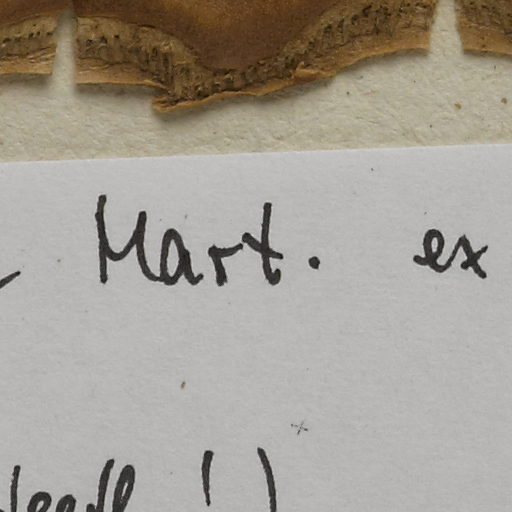 Mart. ex
! )